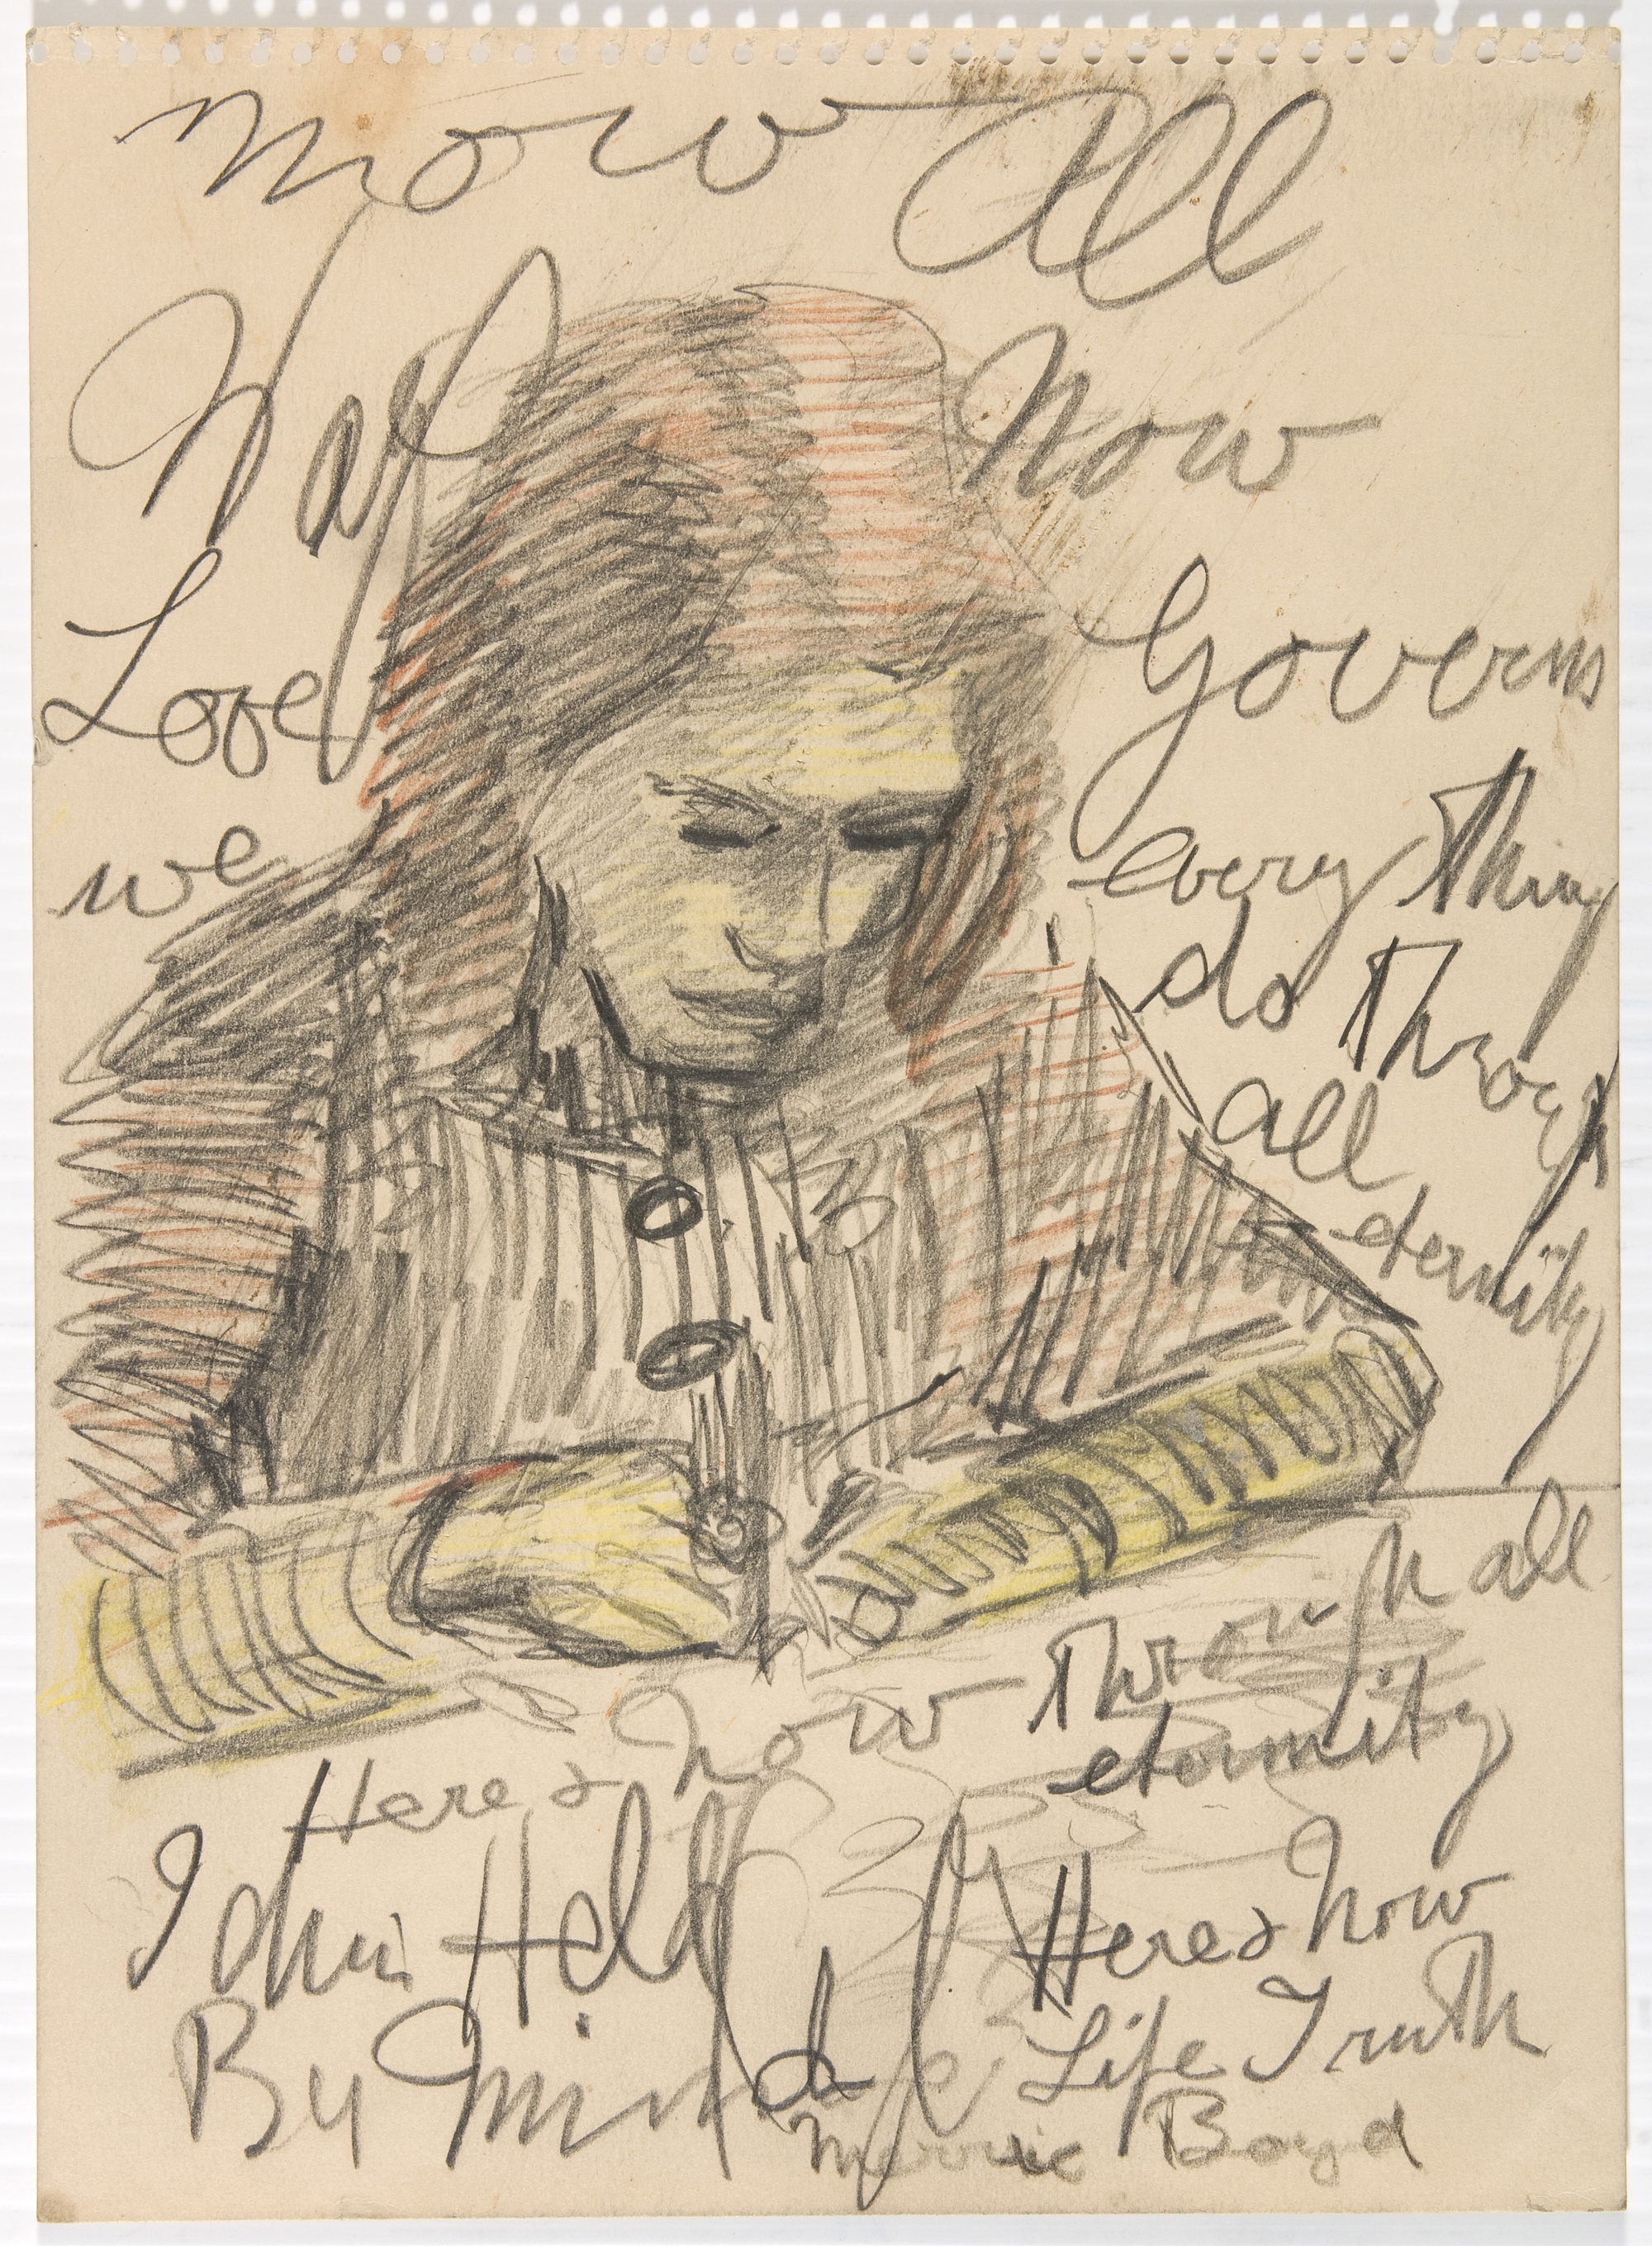 Now All
Way Now
Love Governs
we every Thing
do Through
all
eternity
Through all
Here & Now eternity
John Held Here & Now
By Mind Life Truth
Merric Boyd